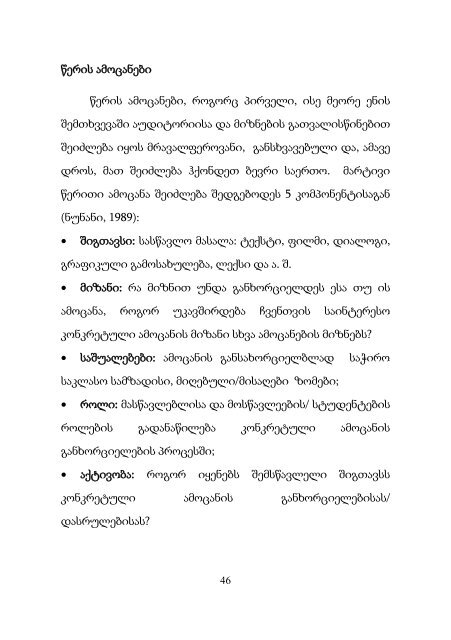 წერის ამოცანები
წერის ამოცანები, როგორც პირველი, ისე მეორე ენის
შემთხვევაში აუდიტორიისა და მიზნების გათვალისწინებით
შეიძლება იყოს მრავალფეროვანი, განსხვავებული და, ამავე
დროს, მათ შეიძლება ჰქონდეთ ბევრი საერთო. მარტივი
წერითი ამოცანა შეიძლება შედგებოდეს 5 კომპონენტისაგან
(ნუნანი, 1989):
• შიგთავსი: სასწავლო მასალა: ტექსტი, ფილმი, დიალოგი,
გრაფიკული გამოსახულება, ლექსი და ა. შ.
• მიზანი: რა მიზნით უნდა განხორციელდეს ესა თუ ის
ამოცანა, როგორ უკავშირდება ჩვენთვის საინტერესო
კონკრეტული ამოცანის მიზანი სხვა ამოცანების მიზნებს?
• საშუალებები: ამოცანის განსახორციელბლად საჭირო
საკლასო სამზადისი, მიღებული/მისაღები ზომები;
• როლი: მასწავლებლისა და მოსწავლეების/ სტუდენტების
როლების გადანაწილება კონკრეტული ამოცანის
განხორციელების პროცესში;
• აქტივობა: როგორ იყენებს შემსწავლელი შიგთავსს
კონკრეტული ამოცანის განხორციელებისას/
დასრულებისას?
46